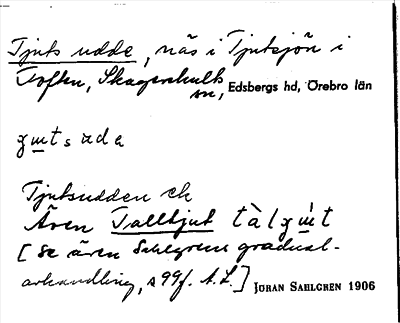 Tjuts udde, näs i Tjutsjön i
Toften, Skagershults
sn, Edsbergs hd, Örebro län
ʒɯts uda
Tjutsudden ek
Även Talltjut tàlʒɯ̀t
[Se även Sahlgrens gradual-
avhandling, s 99f. A.L.] JÖRAN SAHLGREN 1906